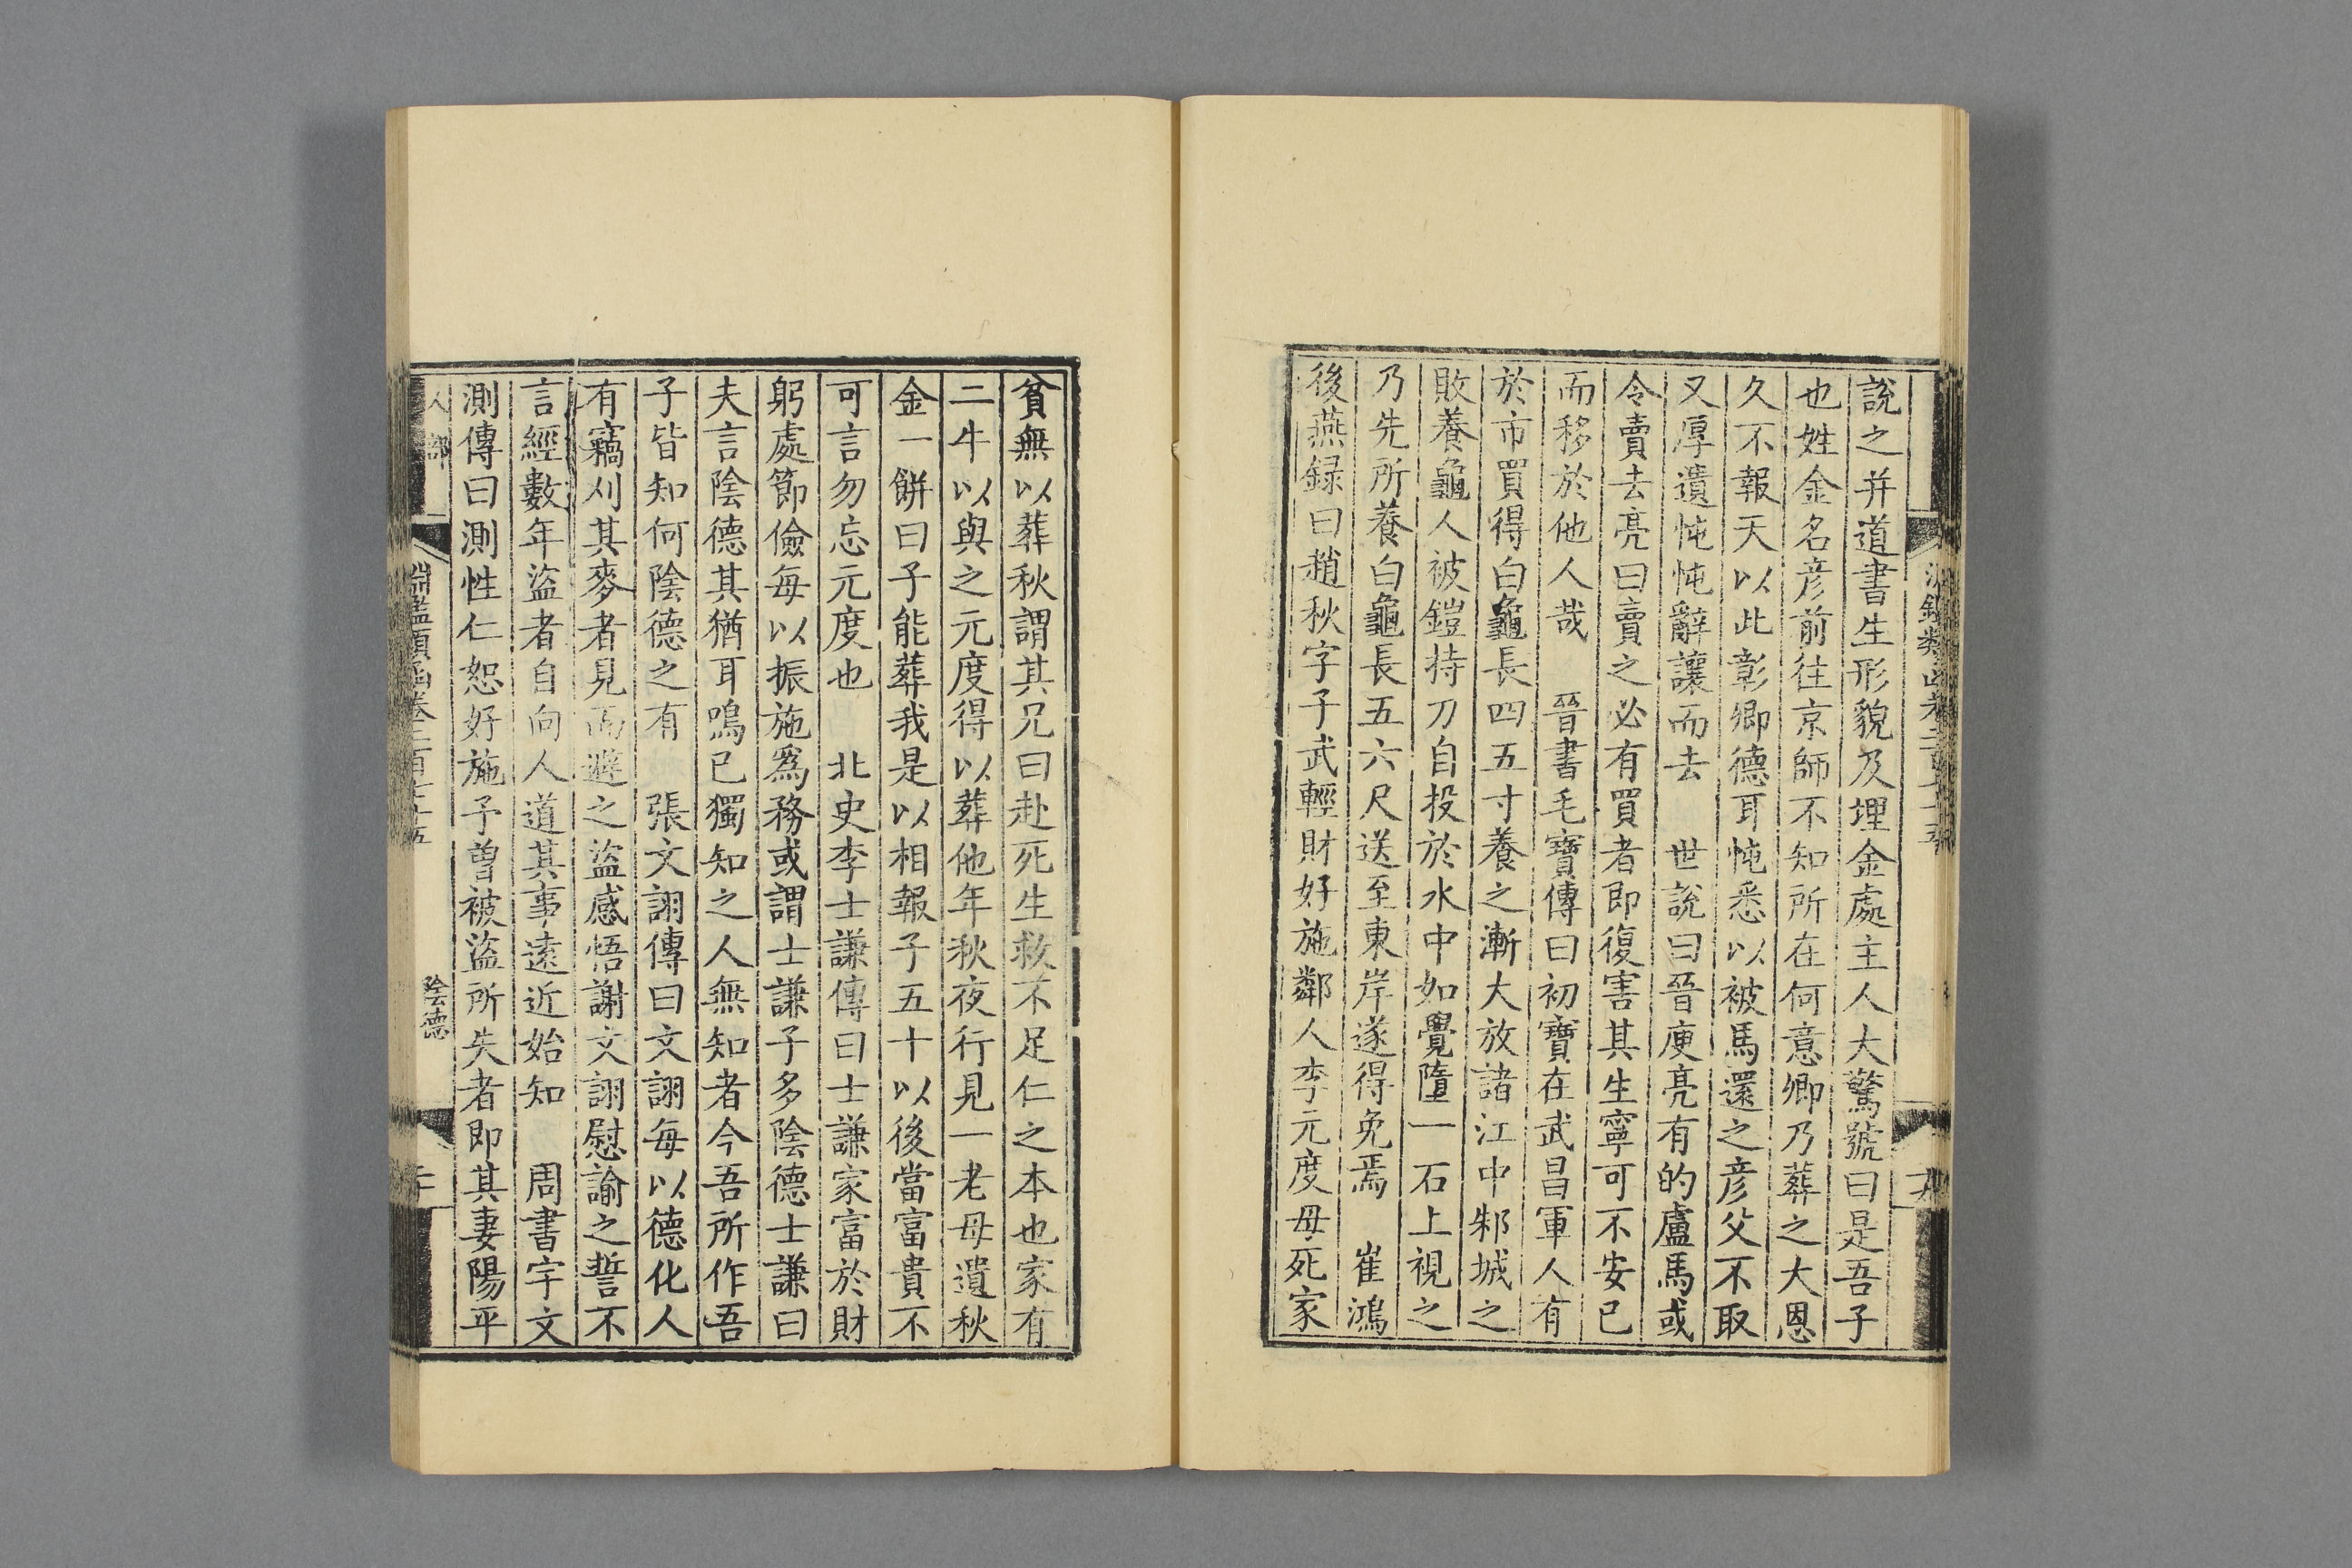 說之并道書生形貌及埋金處主人大驚號曰是吾子
也姓金名彦前往京師不知所在何意卿乃葬之大恩
久不報天以此彰卿德耳忳悉以被馬還之彦父不取
又厚遺忳忳辭讓而去　世說曰晉庾亮有的盧馬或
令賣去亮曰賣之必有買者即復害其生寧可不安已
而移於他人哉　晉書毛寶傳曰初寶在武昌軍人有
於市買得白龜長四五寸養之漸大放諸江中邾城之
敗養龜人被鎧持刀自投於水中如覺墮一石上視之
乃先所養白龜長五六尺送至東岸遂得免焉　崔鴻
後燕録曰趙秋字子武輕財好施鄰人李元度母死家
貧無以葬秋謂其兄曰赴死生救不足仁之本也家有
二牛以與之元度得以葬他年秋夜行見一老母遺秋
金一餅曰子能葬我是以相報子五十以後當富貴不
可言勿忘元度也　北史李士謙傳曰士謙家富於財
躬處節儉每以振施爲務或謂士謙子多陰德士謙曰
夫言陰德其猶耳鳴已獨知之人無知者今吾所作吾
子皆知何陰德之有　張文詡傳曰文詡每以德化人
有竊刈其麥者見而避之盜感悟謝文詡慰諭之誓不
言經數年盜者自向人道其事遠近始知　周書宇文
測傳曰測性仁恕好施予曽被盜所失者即其妻陽平
人部
淵鑑類函卷二百七十五
陰德